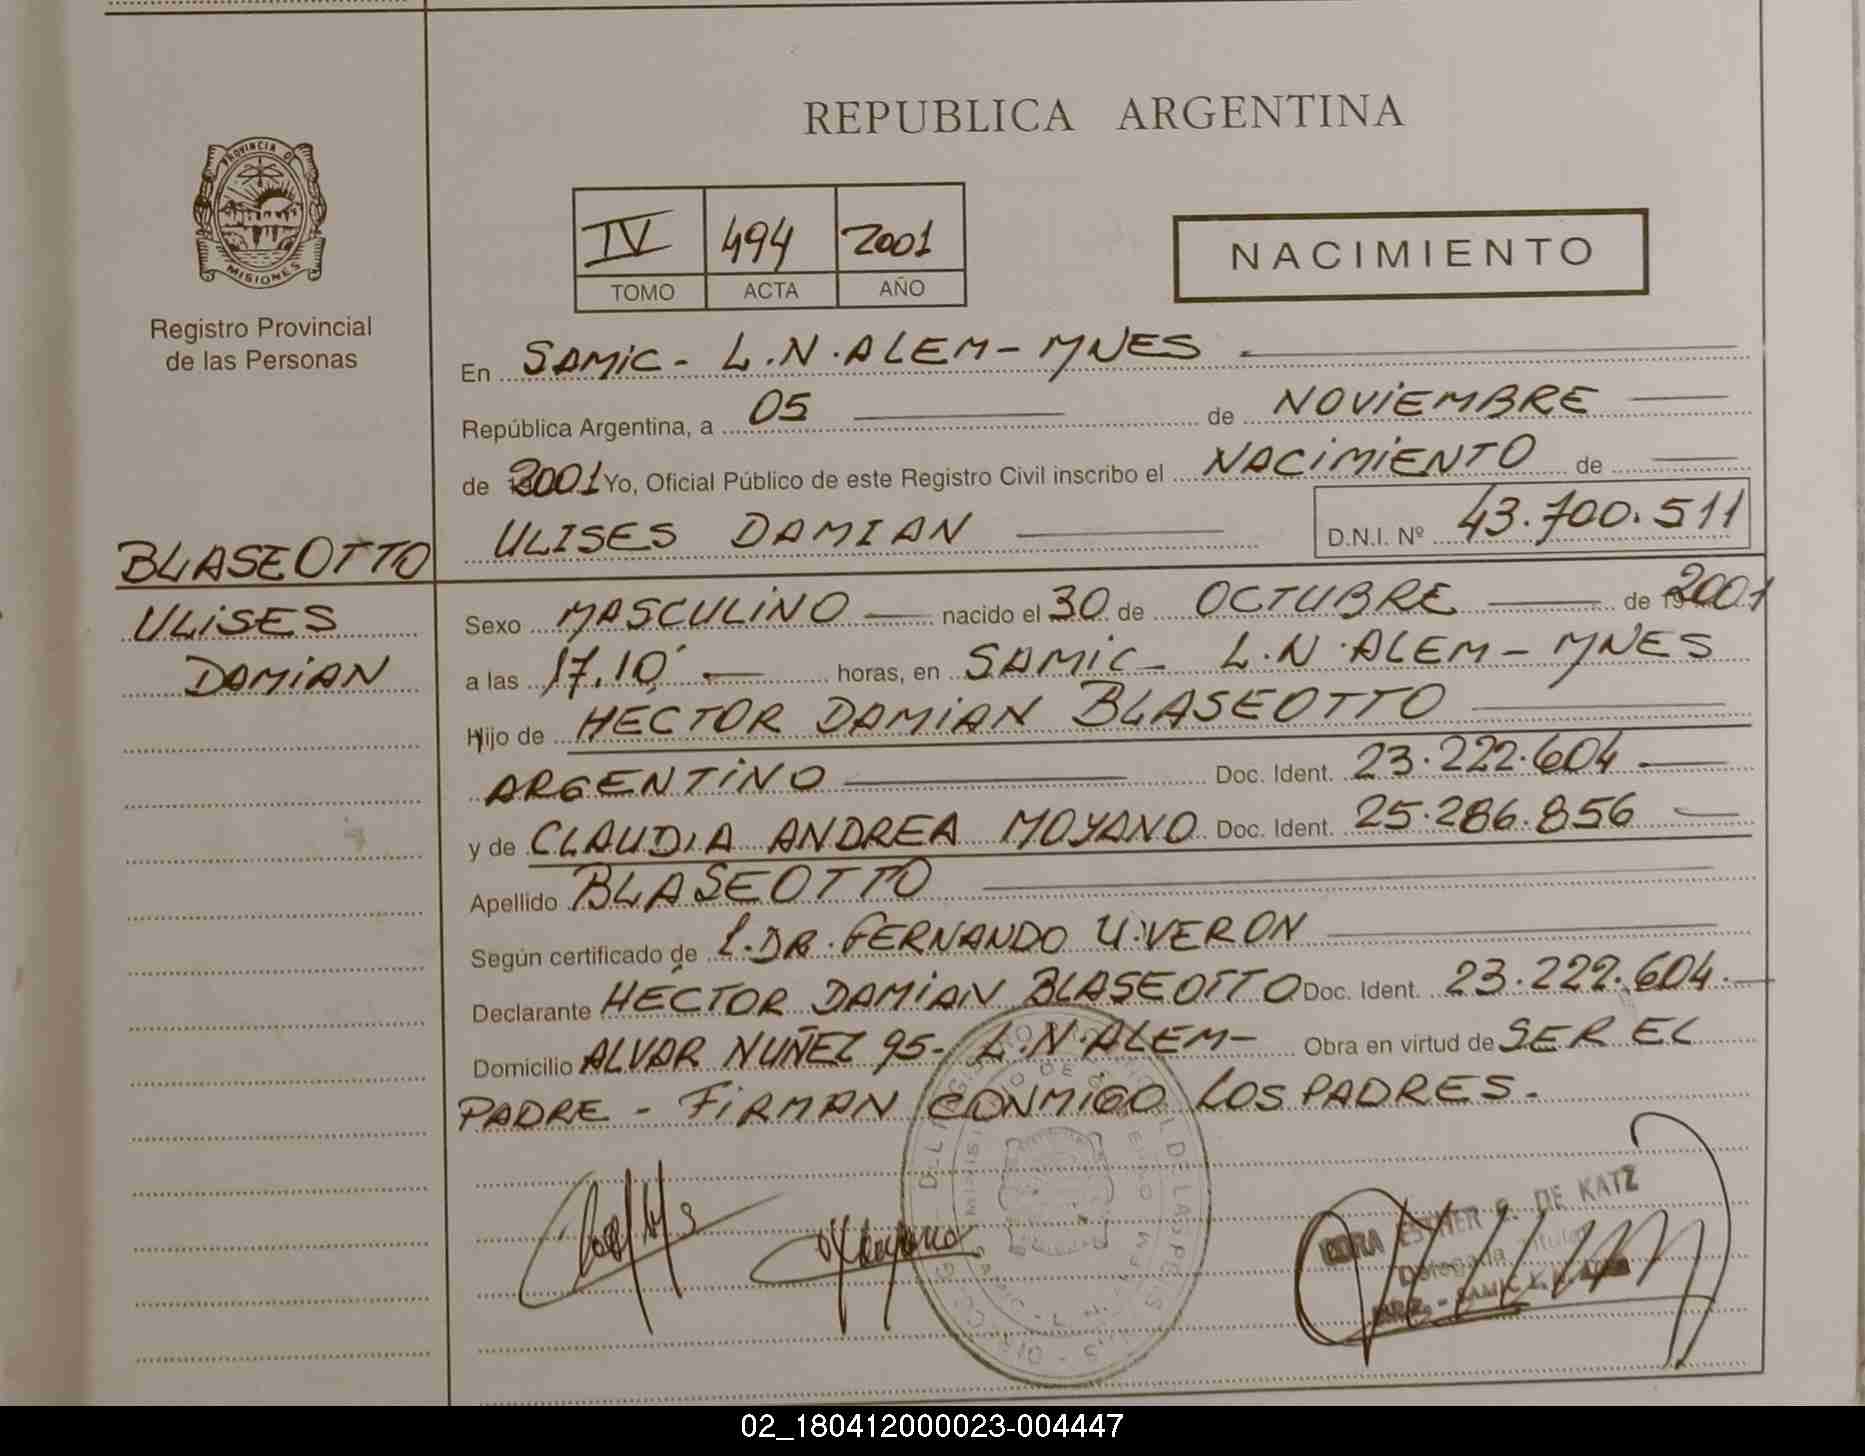 REPUBLICA ARGENTINA
PROVINCIA D
MISIONES
Registro Provincial
de las Personas
IV 494 2001
TOMO ACTA AÑO
NACIMIENTO
En SAMIC - L.N. ALEM - MNES
República Argentina, a 05 de NOVIEMBRE
de 2001 Yo, Oficial Público de este Registro Civil inscribo el NACIMIENTO de
ULISES DAMIAN D.N.I. Nº 43.700.511
BLASEOTTO
ULISES
DAMIAN
Sexo MASCULINO nacido el 30 de OCTUBRE de 2001
a las 17.10' horas, en SAMIC - L.N. ALEM - MNES
Hijo de HECTOR DAMIAN BLASEOTTO
ARGENTINO Doc. Ident. 23.222.604
y de CLAUDIA ANDREA MOYANO Doc. Ident. 25.286.856
Apellido BLASEOTTO
Según certificado de DR. FERNANDO U. VERON
Declarante HECTOR DAMIAN BLASEOTTO Doc. Ident. 23.222.604
Domicilio ALVAR NUÑEZ 95 - L.N. ALEM - Obra en virtud de SER EL
PADRE - FIRMAN CONMIGO LOS PADRES.
ESTHER DE KATZ
Delegada Titular
02_180412000023-004447